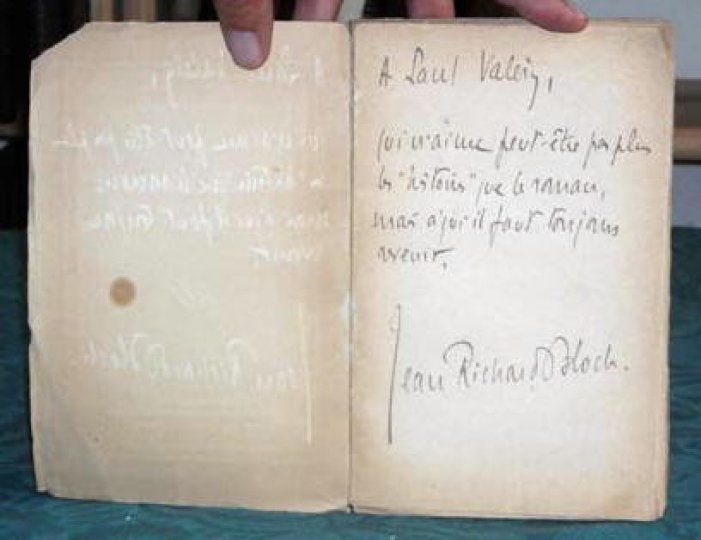 A Paul Valéry,
qui n'aime peut-être pas plus
les "histoires" que le roman,
mais à qui il faut toujours
revenir,
Jean Richard Bloch.